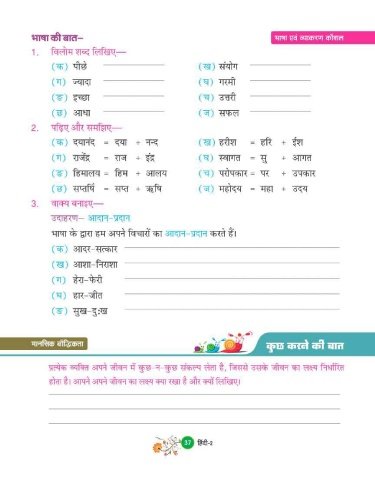 भाषा की बात–
भाषा एवं व्याकरण कौशल
1. विलोम शब्द लिखिए—
(क) पीछे (ख) संयोग
(ग) ज्यादा (घ) गरमी
(ङ) इच्छा (च) उत्तरी
(छ) आधा (ज) सफल
2. पढ़िए और समझिए—
(क) दयानंद = दया + नन्द (ख) हरीश = हरि + ईश
(ग) राजेंद्र = राज + इंद्र (घ) स्वागत = सु + आगत
(ङ) हिमालय = हिम + आलय (च) परोपकार = पर + उपकार
(छ) सप्तर्षि = सप्त + ऋषि (ज) महोदय = महा + उदय
3. वाक्य बनाइए—
उदाहरण– आदान-प्रदान
भाषा के द्वारा हम अपने विचारों का आदान-प्रदान करते हैं।
(क) आदर-सत्कार
(ख) आशा-निराशा
(ग) हेरा-फेरी
(घ) हार-जीत
(ङ) सुख-दुःख
मानसिक बौद्धिकता
कुछ करने की बात
प्रत्येक व्यक्ति अपने जीवन में कुछ-न-कुछ संकल्प लेता है, जिससे उसके जीवन का लक्ष्य निर्धारित
होता है। आपने अपने जीवन का लक्ष्य क्या रखा है और क्यों लिखिए।
37 हिंदी-2